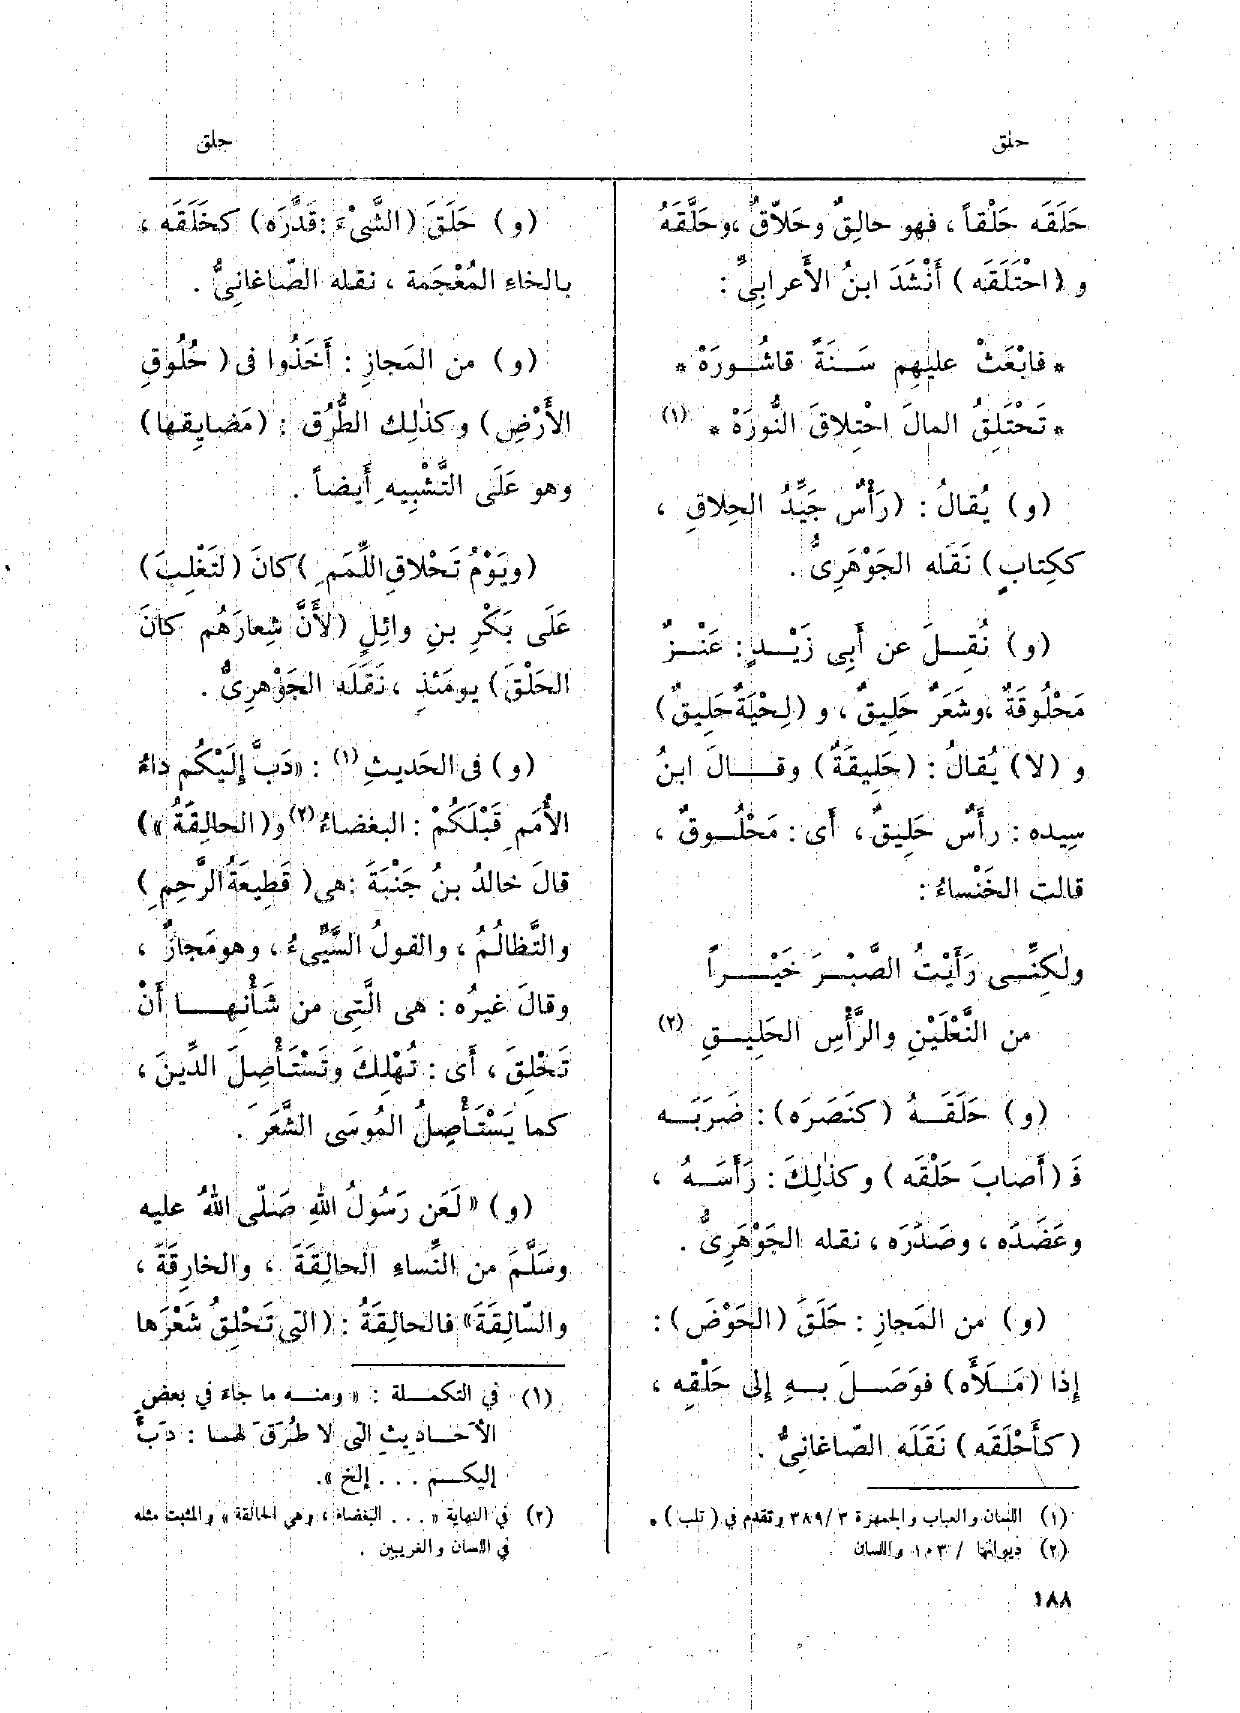 حلق
حلق
حَلَقَه حَلْقاً ، فهو حالِقٌ وحَلّاقٌ ،وحَلَّقَهُ
و (احْتَلَقَه ) أَنْشَدَ ابنُ الأَعرابِىِّ :
* فابْعَثْ عليْهِم سَـنَةً قاشُـورَهْ *
* تَحْتَلِقُ المالَ احْتِلاقَ النُّورَهْ * (١)
(و) يُقالُ : (رَأْسٌ جَيِّدُ الحِلاقِ ،
ككِتابٍ) نَقَله الجَوْهَرِىُّ .
(و) نُقِـلَ عن أَبِى زَيْـدٍ : عَنْـزٌ
مَحْلُوقَةٌ ،وشَعَرٌ حَلِيقٌ ، و (لِحْيَةٌ حَلِيقٌ)
و (لا) يُقالُ : (حَلِيقَةٌ) وقـالَ ابنُ
سِيده : رأْسٌ حَلِيقٌ ، أَى : مَحْلُـوقٌ ،
قالت الخَنْساءُ :
ولٰكِنِّـى رَأَيْتُ الصَّبْـرَ خَيْـراً
من النَّعْلَيْنِ والرَّأْسِ الحَلِيـقِ (٢)
(و) حَلَقَـهُ (كنَصَرَه) : ضَرَبَـه
فَـ (أَصابَ حَلْقَه) وكذٰلِكَ : رَأَسَـهُ ،
وعَضَدَه ، وصَدَرَه ، نقله الجَوْهَرِىُّ .
(و) من المَجازِ : حَلَقَ (الحَوْضَ) :
إذا (مَـلَأَه) فوَصَـلَ بـهِ إلى حَلْقِه ،
(كأَحْلَقَه) نَقَلَه الصّاغانِىُّ .
(١) اللسان والعباب والجمهرة ٣٨٩/٣ وتقدم في (تلب) .
(٢) ديوانها / ١٠٣ واللسان
١٨٨
(و) حَلَقَ (الشَّىْءَ : قَدَّرَه) كخَلَقَه ،
بالخاءِ المُعْجَمة ، نقله الصّاغانِىُّ .
(و) من المَجازِ : أَخَذُوا فى ( حُلُوقِ
الأَرْضِ) وكذٰلِك الطُّرُق : (مَضايِقها)
وهو عَلَى التَّشْبِيهِ أَيضاً .
(ويَوْمُ تَحْلاقِ اللِّمَمِ )كانَ (لتَغْلِبَ)
عَلَى بَكْرِ بنِ وائِلٍ (لأَنَّ شِعارَهُم كانَ
الحَلْقَ) يومَئذٍ ، نَقَلَه الجَوْهرِىُّ .
(و) فى الحَديثِ (١) : «دَبَّ إِلَيْكُم داءُ
الأُمَمِ قَبْلَكُمْ : البغضاءُ (٢) و(الحالِقَةُ »)
قالَ خالدُ بنُ جَنْبَةَ :هى( قَطِيعَةُ الرَّحِمِ )
والتَّظالُمُ ، والقولُ السَّيِّىءُ ، وهومَجازٌ ،
وقالَ غيرُه : هى الَّتِى من شَأْنِهـا أَنْ
تَحْلِقَ ، أَى : تُهْلِكَ وتَسْتَأْصِلَ الدِّينَ ،
كما يَسْتَأْصِلُ المُوسَى الشَّعَرَ .
(و) « لَعَن رَسُولُ اللهِ صَلّى اللهُ عليه
وسَلَّمَ من النِّساءِ الحالِقَةَ ، والخارِقَةَ ،
والسّالِقَةَ» فالحالِقَةُ : (التى تَحْلِقُ شَعْرَها
(١) في التكملة : « ومنـه ما جاء في بعض
الأحـاديثِ التى لا طُرُقَ لهـا : دَبَّ
إليكـم . . . إلخ ».
(٢) في النهاية « . . . البغضاء ، وهي الحالقة » والمثبت مثله
في اللسان والغريبين .